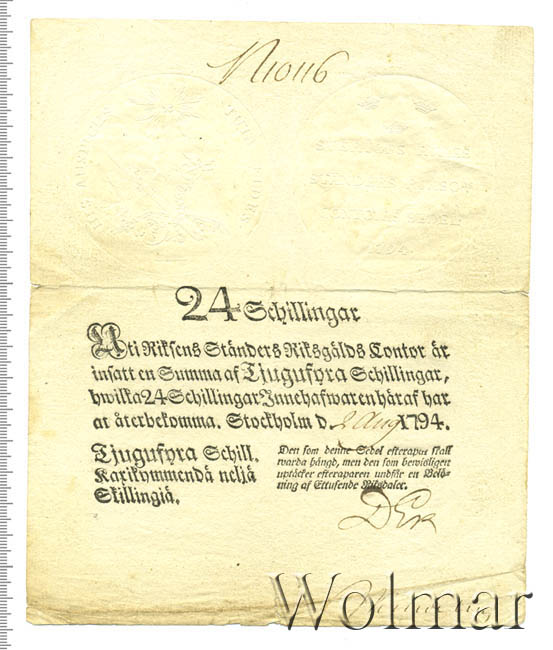 N 10116
HIS AUSPICIIS TUTA FIDES
SVERIGES RIKES
STÄNDERS RIKSG.
1794.
24 Schillingar
Uti Riksens Ständers Riksgälds Contor är
insatt en Summa af Tjugufyra Schillingar,
hwilka 24 Schillingar Innehafwaren häraf har
at återbekomma. Stockholm d. 2 Aug 1794.
Tjugufyra Schill.
Kaxikymmendä neljä
Skillingiä.
Den som denne Sedel efterapar skall
warda hängd, men den som bewisligen
uptäcker efteraparen undfår en Belö-
ning af Ettusende Riksdaler.
Wolmar